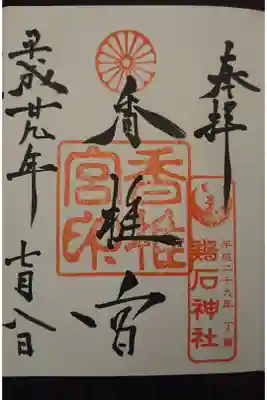 奉拝
香椎宮
香椎宮印
鶏石神社
平成二十九年 丁酉
平成廿九年 七月八日